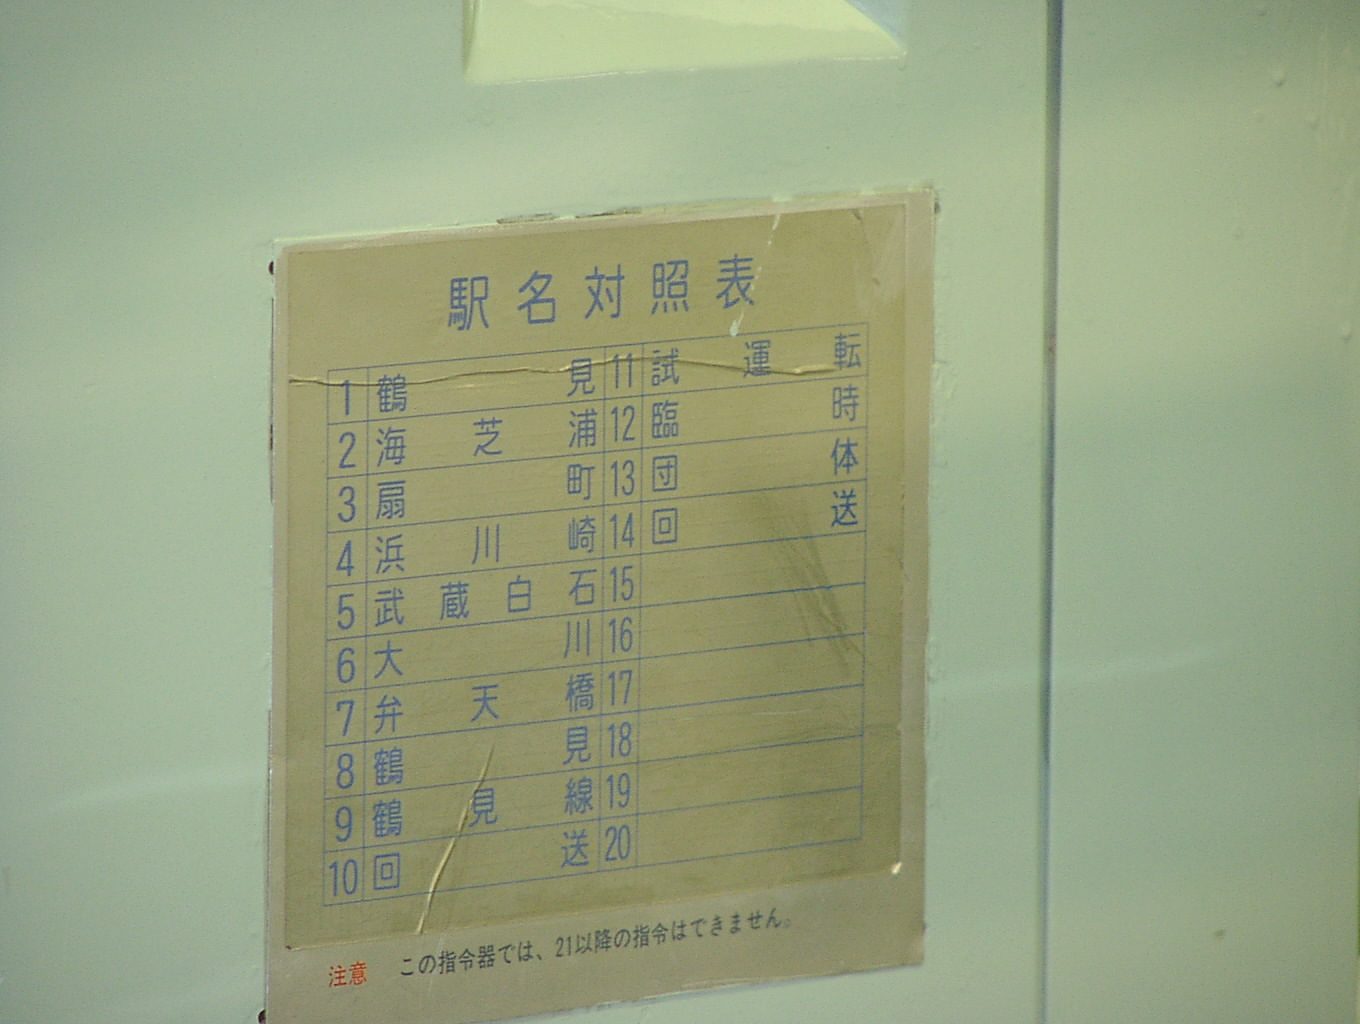 駅名対照表
1 鶴見 11 試運転
2 海芝浦 12 臨時
3 扇町 13 団体
4 浜川崎 14 回送
5 武蔵白石 15
6 大川 16
7 弁天橋 17
8 鶴見 18
9 鶴見線 19
10 回送 20
注意 この指令器では、21以降の指令はできません。